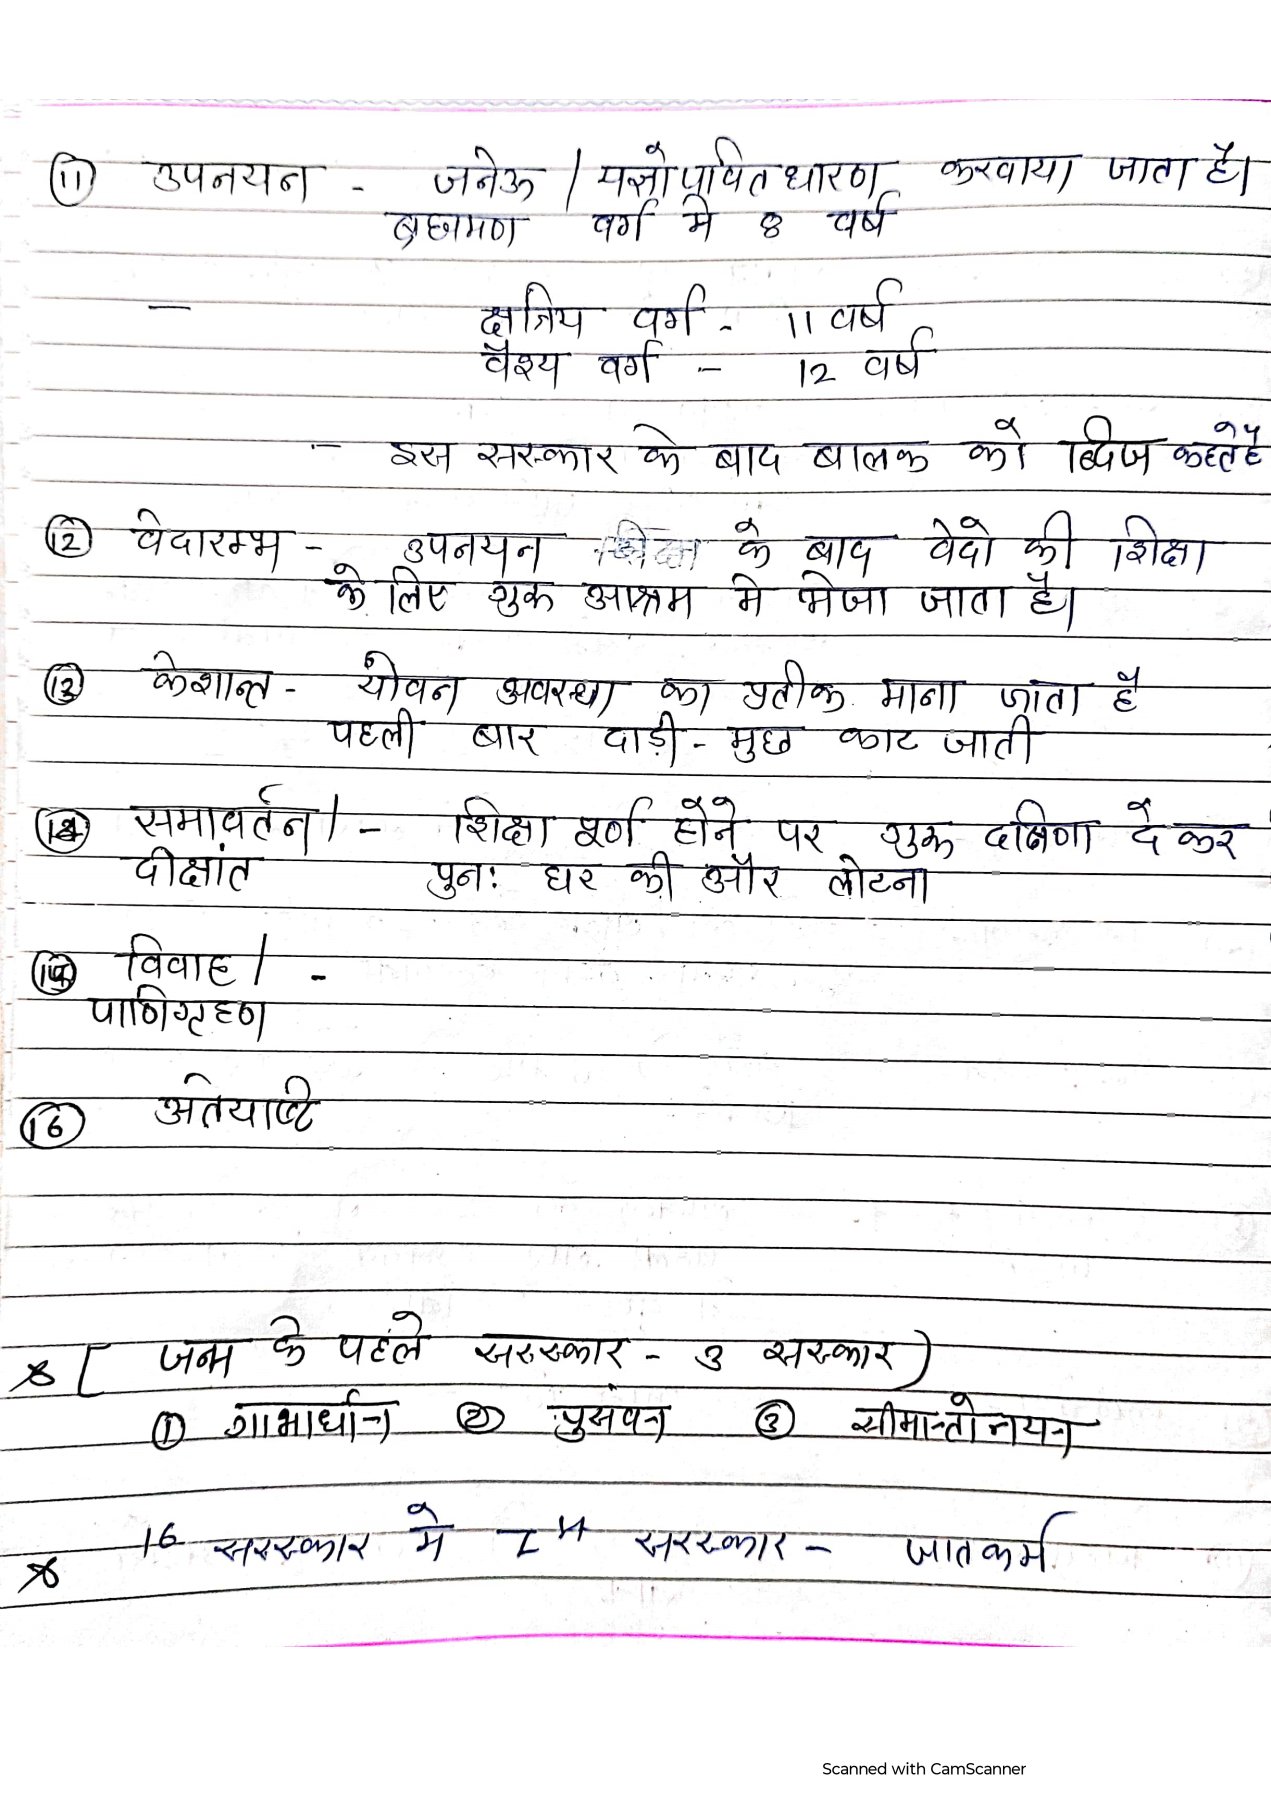 (11) उपनयन - जनेऊ / यज्ञोपवित धारण करवाया जाता है।
ब्रह्मामण वर्ग मे 8 वर्ष
- क्षत्रिय वर्ग - 11 वर्ष
वैश्य वर्ग - 12 वर्ष
- इस सस्कार के बाद बालक को द्विज कहते है
(12) वेदारम्भ - उपनयन के बाद वेदो की शिक्षा
के लिए गुरू आश्रम मे भेजा जाता है।
(13) केशान्त - योवन अवस्था का प्रतीक माना जाता है
पहली बार दाड़ी - मुछ काट जाती
(14) समावर्तन / - शिक्षा पूर्ण होने पर गुरू दक्षिणा दे कर
दीक्षांत पुनः घर की और लोटना
(15) विवाह / -
पाणिग्रहण
(16) अतेयाष्टि
* [ जन्म के पहले सस्कार - 3 सस्कार )
(1) गाभार्धान (2) पुसंवन (3) सीमान्तोनयन
* 16 सस्स्कार मे I st सस्स्कार - जातकर्म
Scanned with CamScanner